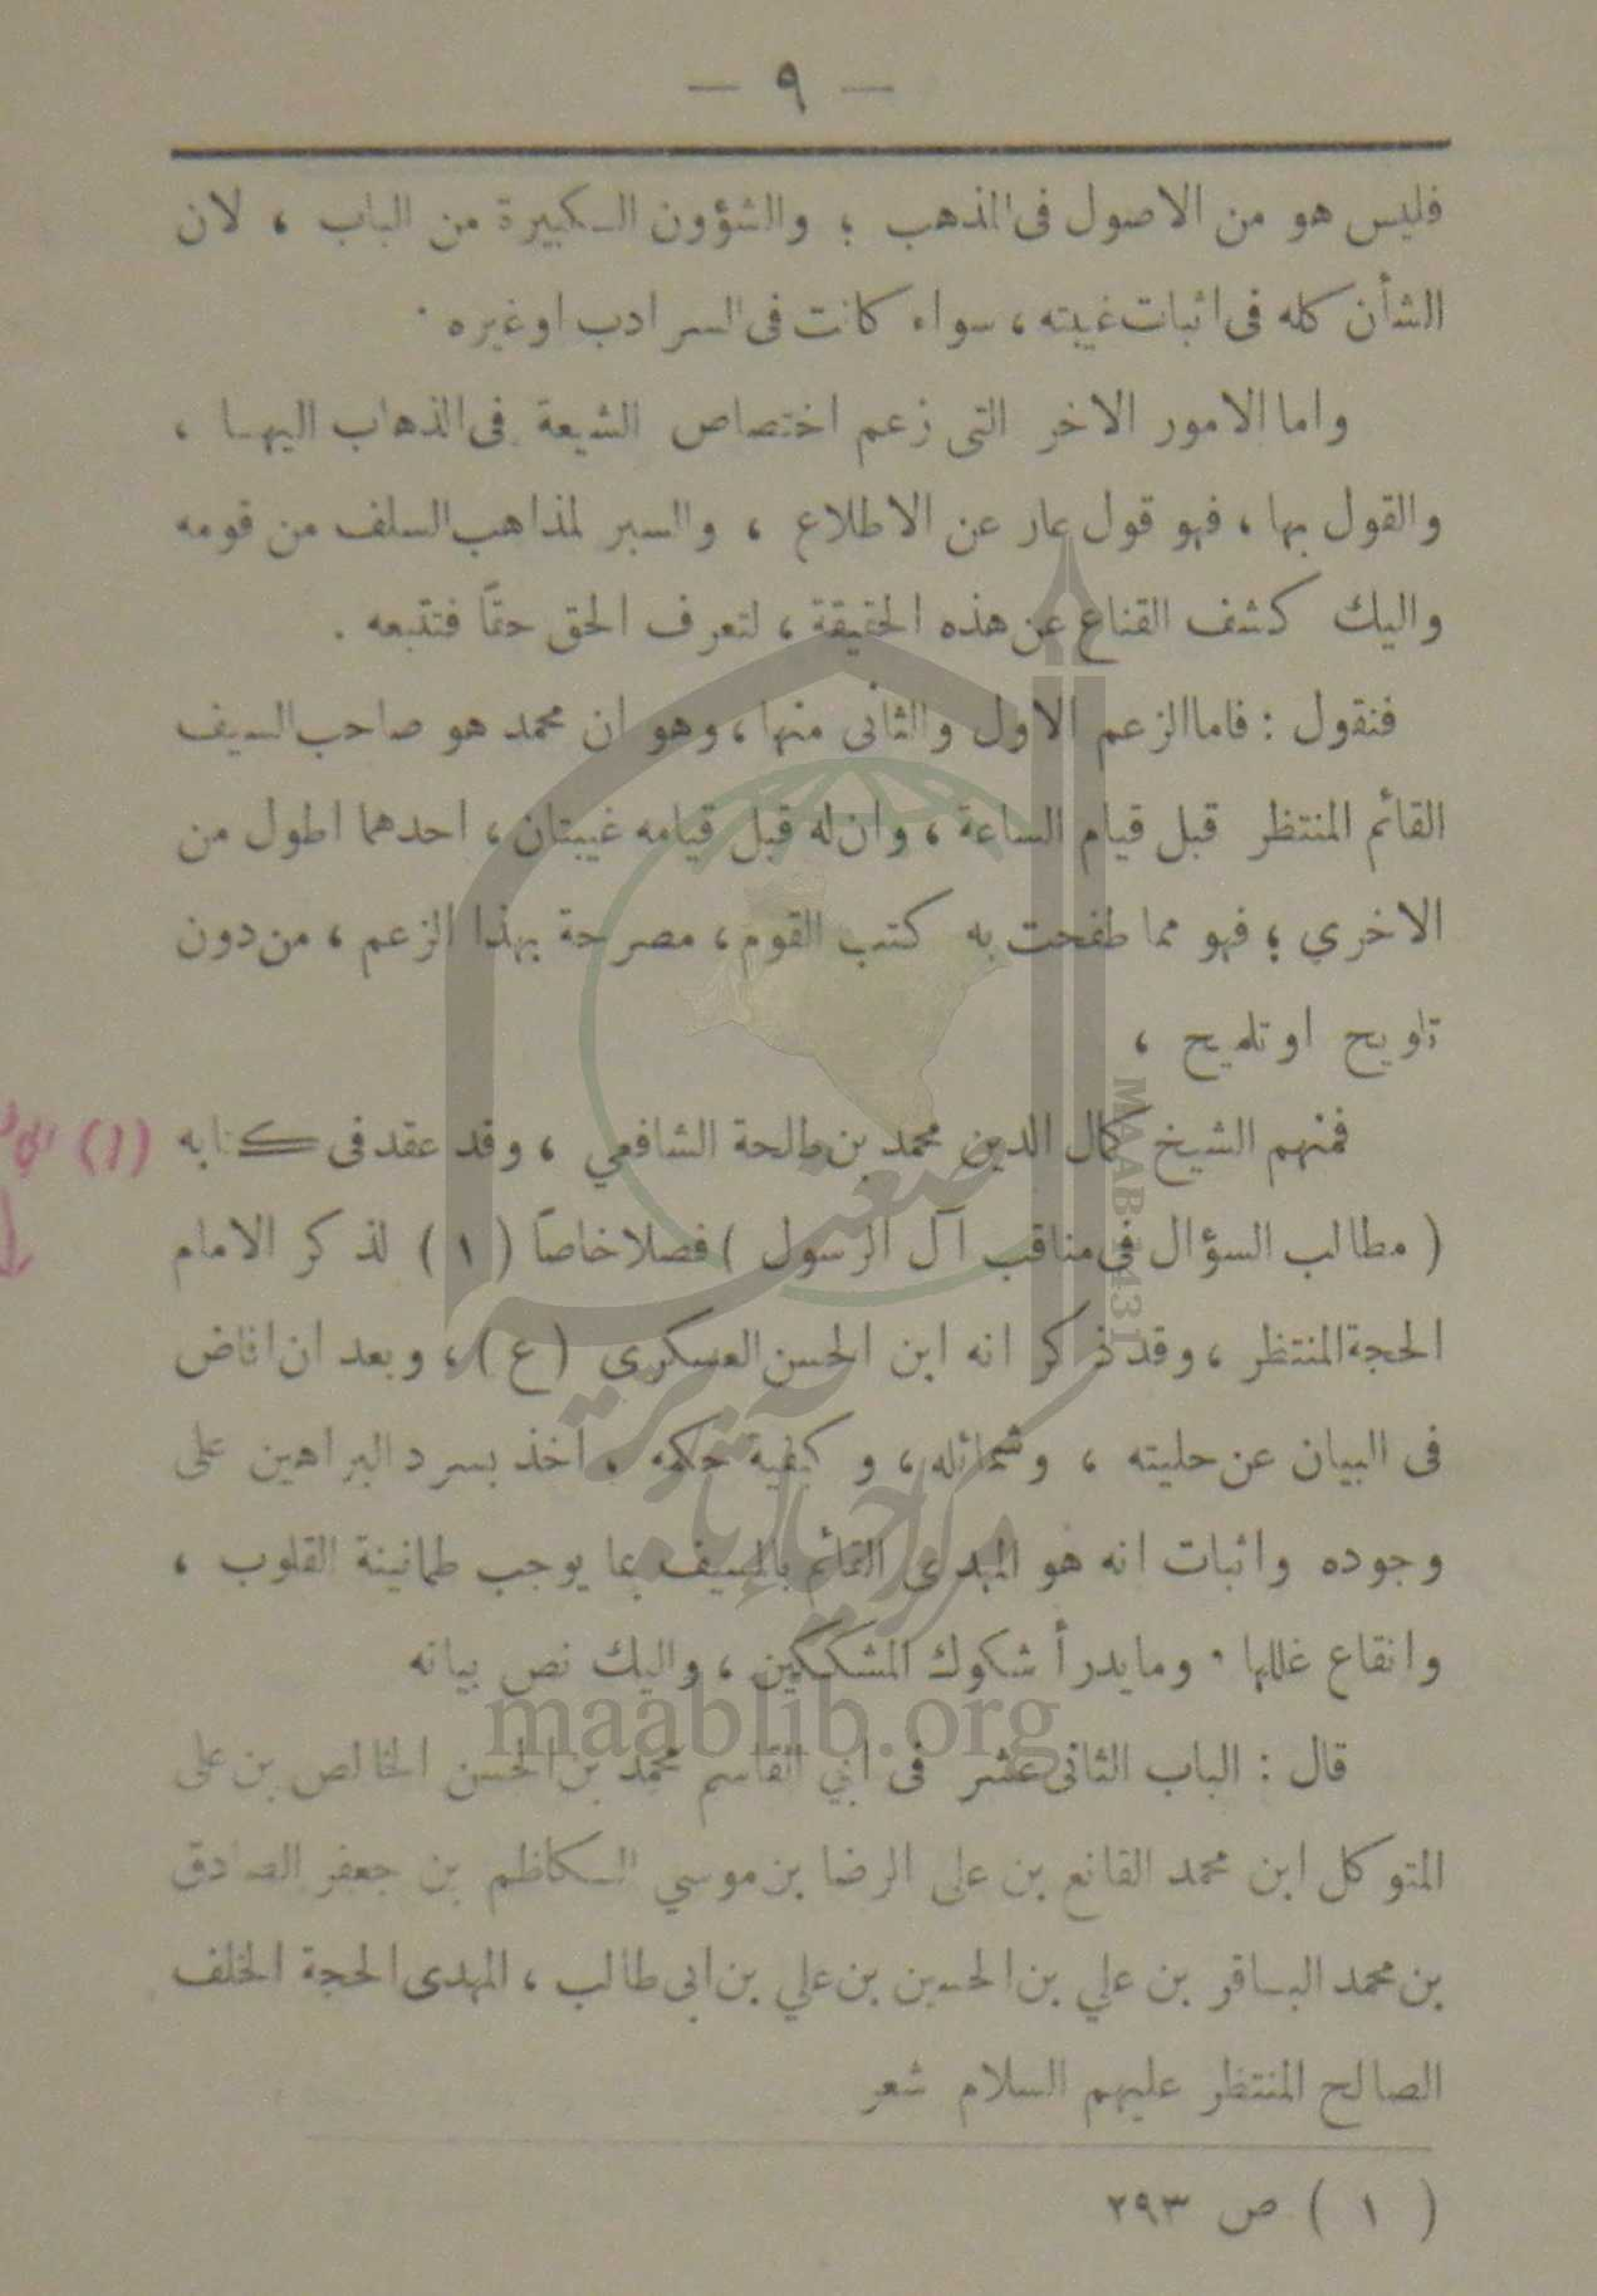 — ٩ —
فليس هو من الاصول فى المذهب ؛ والشؤون الكبيرة من الباب ، لان
الشأن كله فى اثبات غيبته ، سواء كانت فى السرادب او غيره ٠
واما الامور الاخر التى زعم اختصاص الشيعة فى الذهاب اليها ،
والقول بها ، فهو قول عار عن الاطلاع ، والسبر لمذاهب السلف من قومه
واليك كشف القناع عن هذه الحقيقة ، لتعرف الحق حقاً فتتبعه .
فنقول : فاما الزعم الاول والثانى منها ، وهو ان محمد هو صاحب السيف
القائم المنتظر قبل قيام الساعة ، وان له قبل قيامه غيبتان ، احدهما اطول من
الاخري ؛ فهو مما طفحت به كتب القوم ، مصرحة بهذا الزعم ، من دون
تلويح او تلميح ،
فمنهم الشيخ كمال الدين محمد بن طلحة الشافعي ، وقد عقد فى كتابه
( مطالب السؤال فى مناقب آل الرسول ) فصلا خاصاً ( ١ ) لذكر الامام
الحجة المنتظر ، وقد ذكر انه ابن الحسن العسكرى (ع) ، وبعد ان افاض
فى البيان عن حليته ، وشمائله ، و كيفية حكمه . اخذ بسرد البراهين على
وجوده واثبات انه هو المهدى القائم بالسيف بما يوجب طمانينة القلوب ،
وانقاع غللها ٠ وما يدرأ شكوك المشككين ، واليك نص بيانه
قال : الباب الثانى عشر فى ابي القاسم محمد بن الحسن الخالص بن على
المتوكل ابن محمد القانع بن على الرضا بن موسي الكاظم بن جعفر الصادق
بن محمد الباقر بن علي بن الحسين بن علي بن ابى طالب ، المهدى الحجة الخلف
الصالح المنتظر عليهم السلام شعر
( ١ ) ص ٢٩٣
(١)
MAAB 1431
maablib.org